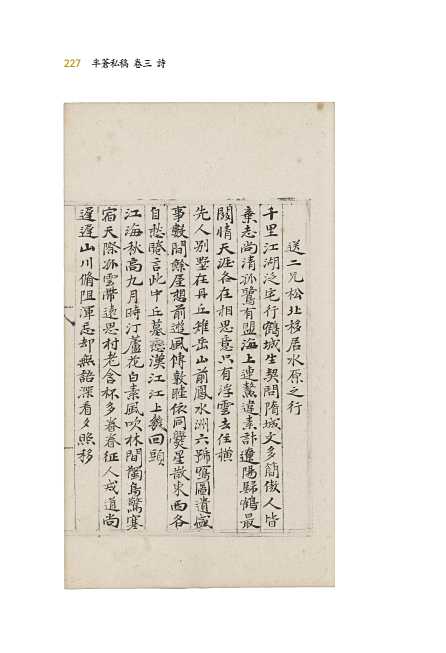 227 半蒼私稿 卷三 詩
送二兄松北移居水原之行
千里江湖泛宅行鶴城生契問隋城文多簡傲人皆
棄志尚清孤鷺有盟海上連鰲違素計遼陽歸鶴最
關情天涯各在相思意只有浮雲去住橫
先人別墅在丹丘雉岳山前鳳水洲六 圖遺
事數間餘屋想前遊風傳敦睦依同爨星散東西各
自愁瞻言此中丘墓戀漢江江上幾回頭
江海秋高九月時汀蘆花白素風吹林間獨鳥驚塞
宿天際孤雲帶遠思村老含杯多眷眷征人戒道尚
遲遲山川脩阻渾忘却無語深看夕照移